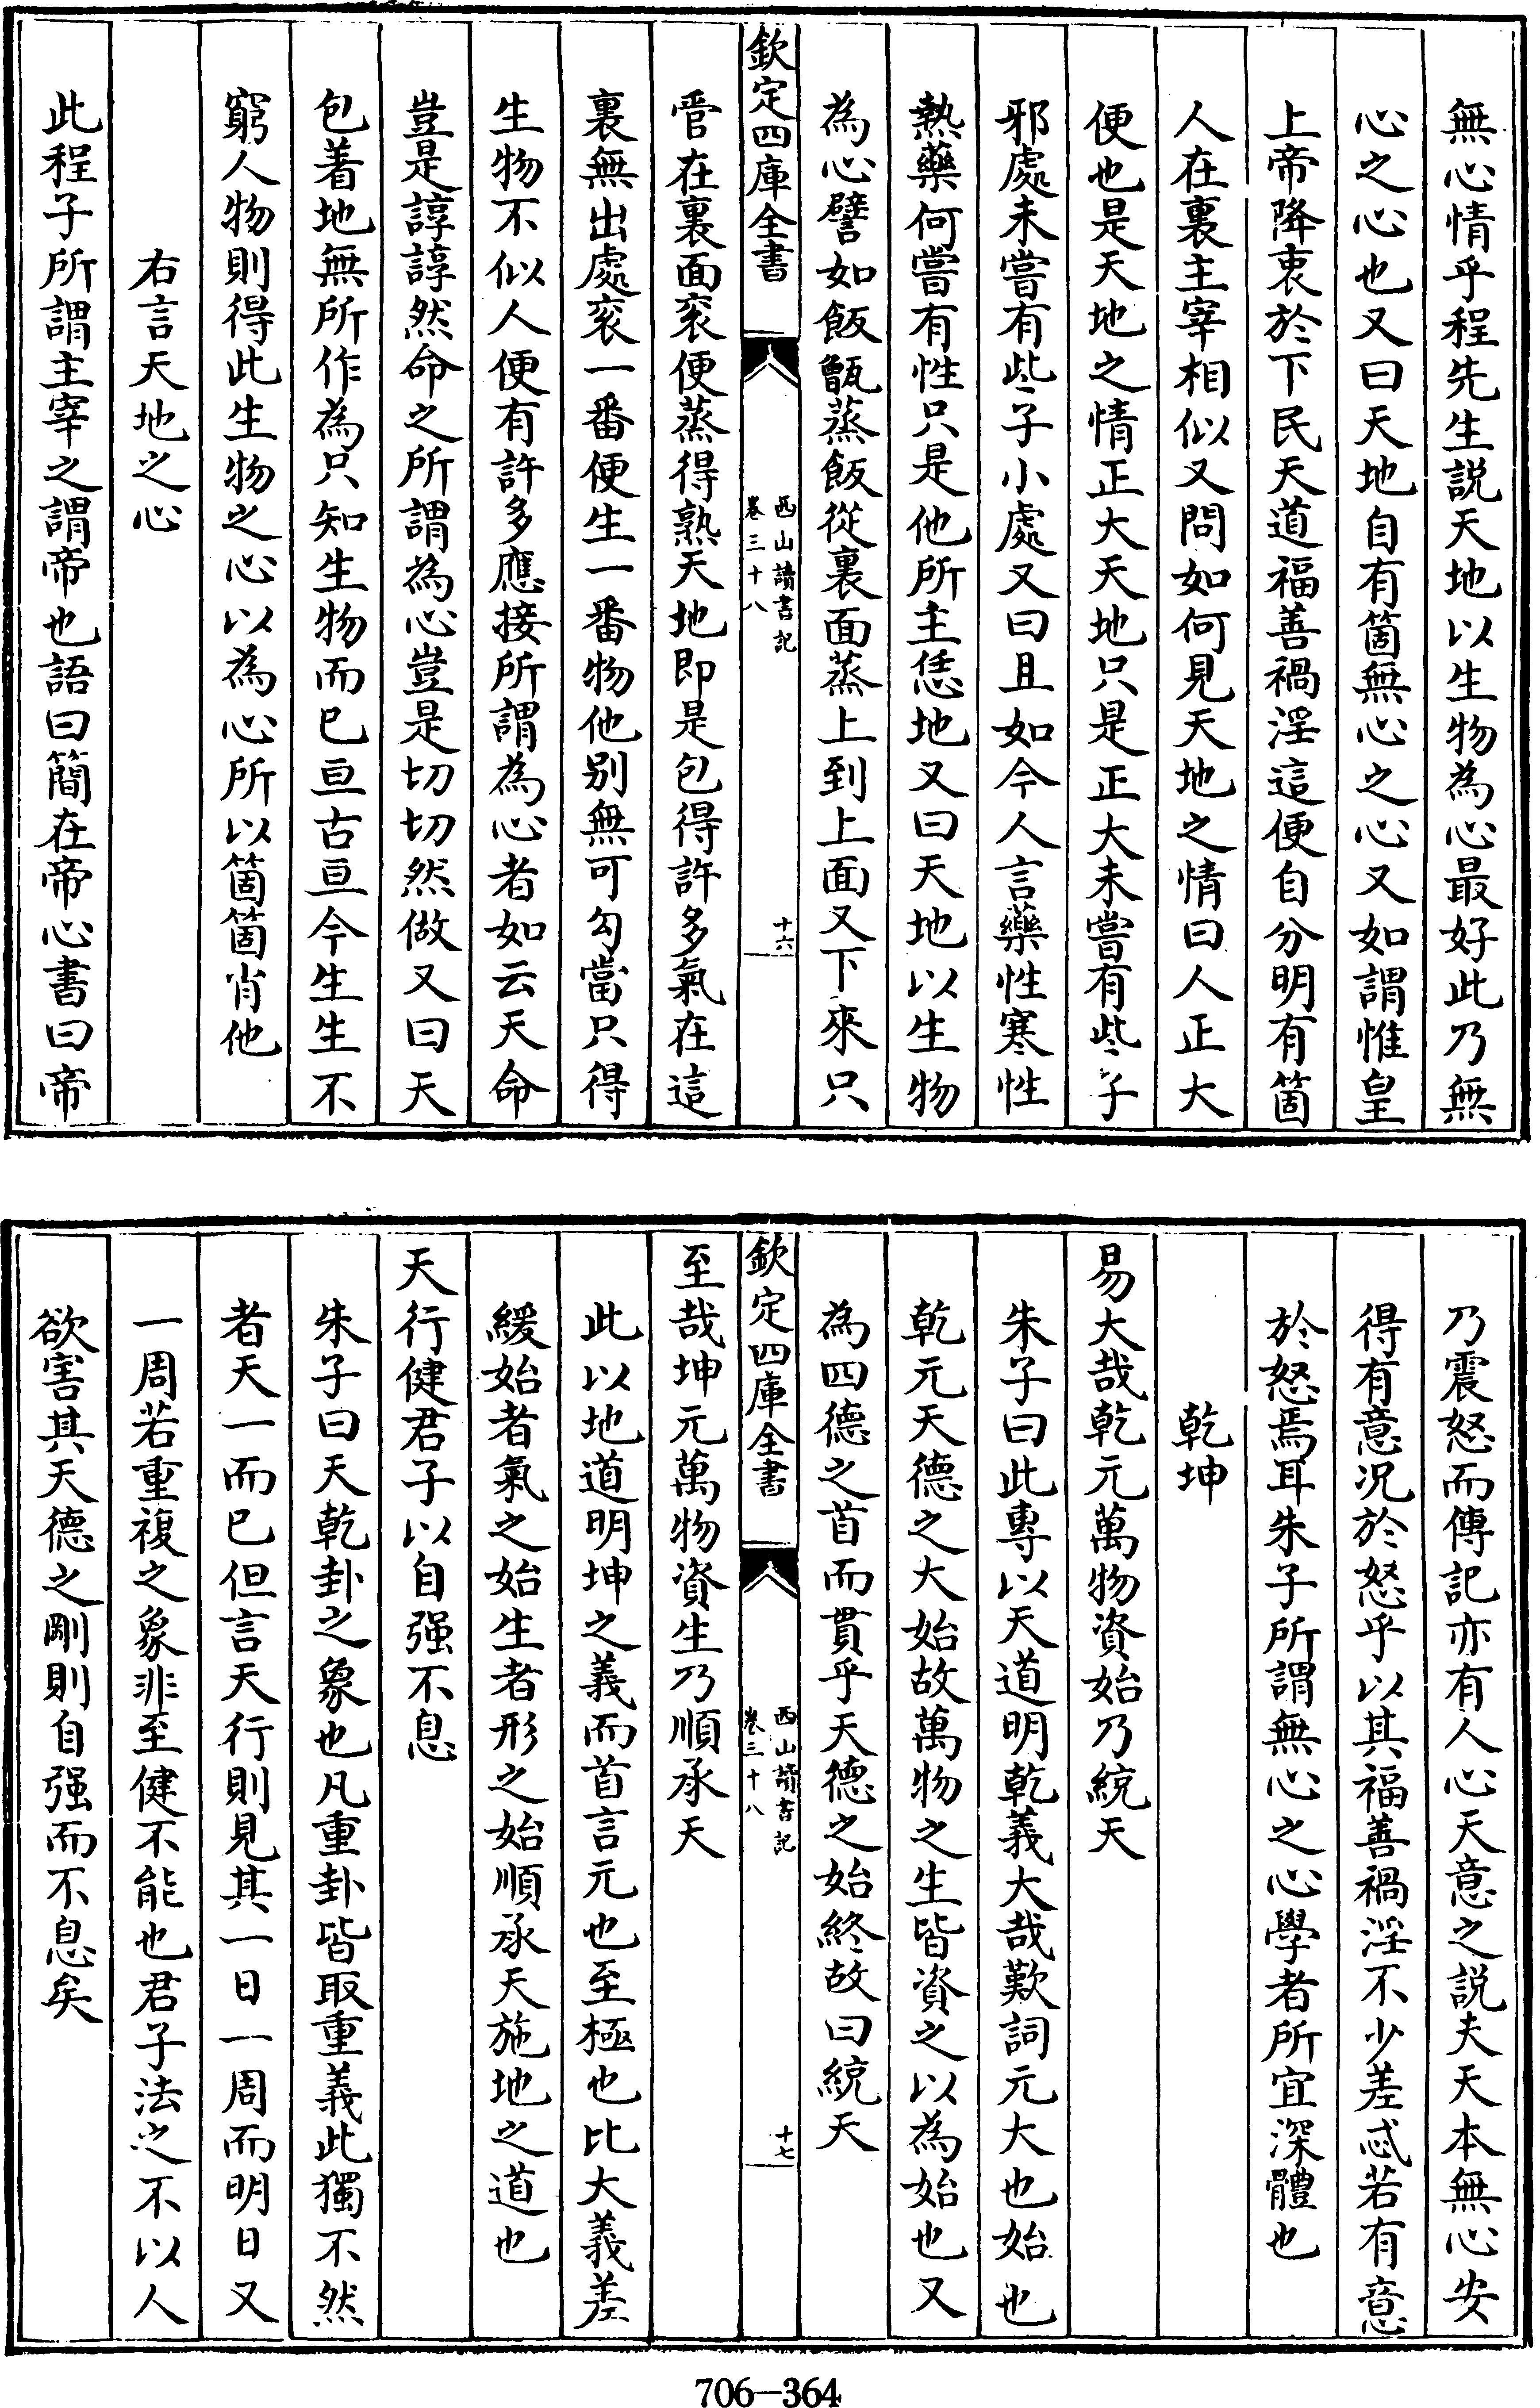 無心情乎程先生說天地以生物為心最好此乃無
心之心也又曰天地自有箇無心之心又如謂惟皇
上帝降衷於下民天道福善禍淫這便自分明有箇
人在裏主宰相似又問如何見天地之情曰人正大
便也是天地之情正大天地只是正大未嘗有些子
邪處未嘗有些子小處又曰且如今人言藥性寒性
熱藥何嘗有性只是他所主恁地又曰天地以生物
為心譬如飯甑蒸飯從裏面蒸上到上面又下來只
欽定四庫全書
西山讀書記
卷三十八
十六
管在裏面滚便蒸得熟天地即是包得許多氣在這
裏無出處滚一番便生一番物他别無可勾當只得
生物不似人便有許多應接所謂為心者如云天命
豈是諄諄然命之所謂為心豈是切切然做又曰天
包着地無所作為只知生物而已亘古亘今生生不
窮人物則得此生物之心以為心所以箇箇肖他
右言天地之心
此程子所謂主宰之謂帝也語曰簡在帝心書曰帝
乃震怒而傳記亦有人心天意之說夫天本無心安
得有意况於怒乎以其福善禍淫不少差忒若有意
於怒焉耳朱子所謂無心之心學者所宜深體也
乾坤
易大哉乾元萬物資始乃統天
朱子曰此專以天道明乾義大哉歎詞元大也始也
乾元天德之大始故萬物之生皆資之以為始也又
為四德之首而貫乎天德之始終故曰統天
欽定四庫全書
西山讀書記
卷三十八
十七
至哉坤元萬物資生乃順承天
此以地道明坤之義而首言元也至極也比大義差
緩始者氣之始生者形之始順承天施地之道也
天行健君子以自强不息
朱子曰天乾卦之象也凡重卦皆取重義此獨不然
者天一而已但言天行則見其一日一周而明日又
一周若重複之象非至健不能也君子法之不以人
欲害其天德之剛則自强而不息矣
706-364